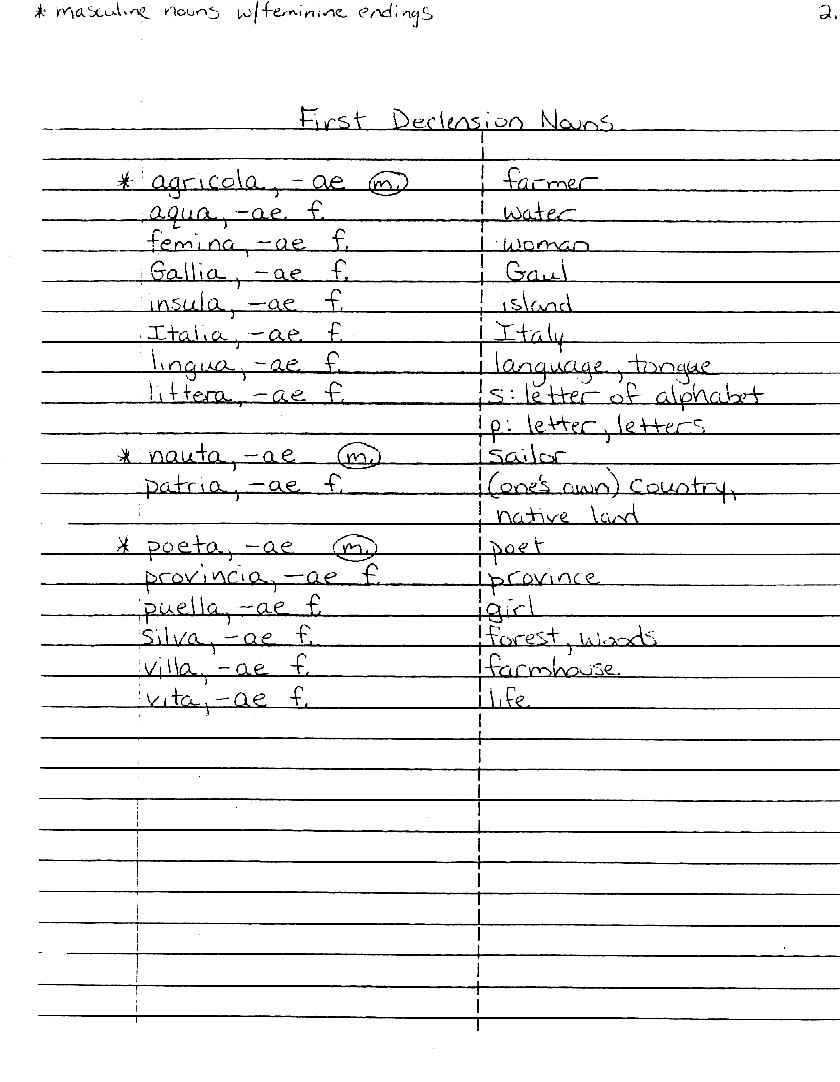 * masculine nouns w/feminine endings 2.
First Declension Nouns
* agricola, -ae m. farmer
aqua, -ae f. water
femina, -ae f. woman
Gallia, -ae f. Gaul
insula, -ae f. island
Italia, -ae f. Italy
lingua, -ae f. language, tongue
littera, -ae f. s: letter of alphabet
p: letter, letters
* nauta, -ae m. sailor
patria, -ae f. (one's own) country,
native land
* poeta, -ae m. poet
provincia, -ae f. province
puella, -ae f. girl
silva, -ae f. forest, woods
villa, -ae f. farmhouse.
vita, -ae f. life